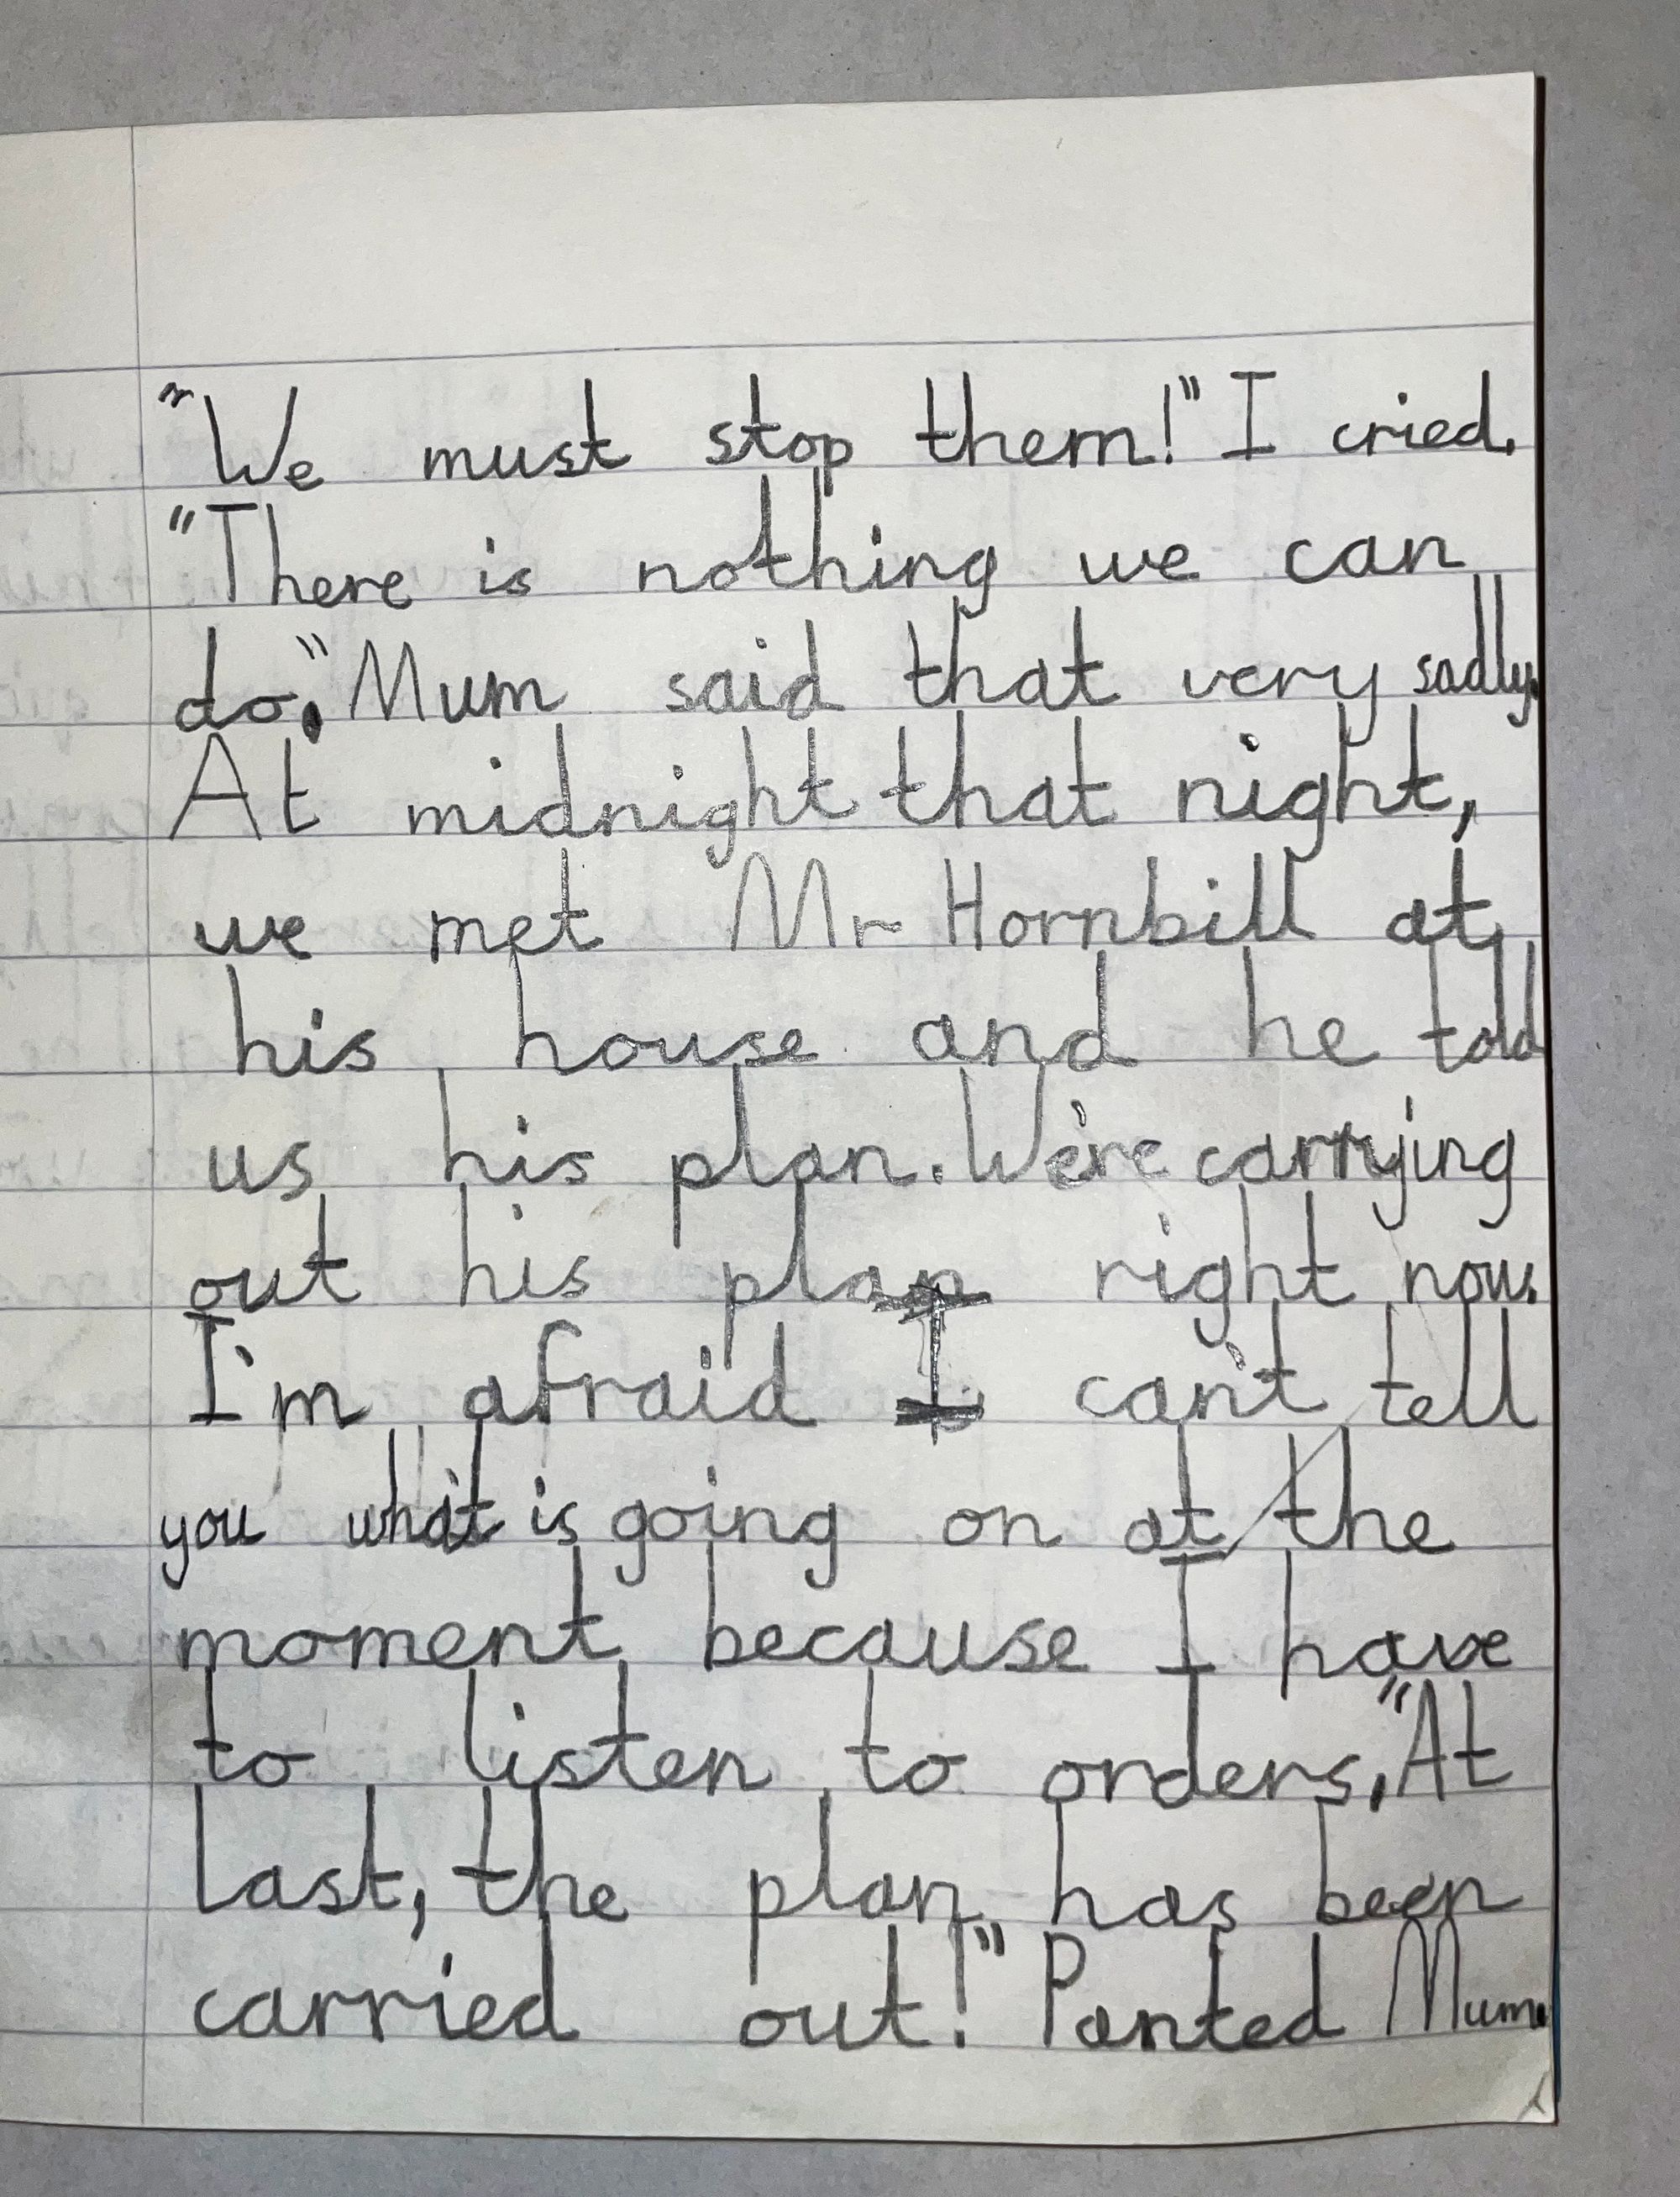 "We must stop them!" I cried.
"There is nothing we can
do." Mum said that very sadly.
At midnight that night,
we met Mr Hornbill at
his house and he told
us his plan. We're carrying
out his plan right now.
I'm afraid I can't tell
you what is going on at the
moment because I have
to listen to orders. "At
last, the plan has been
carried out!" Panted Mum.